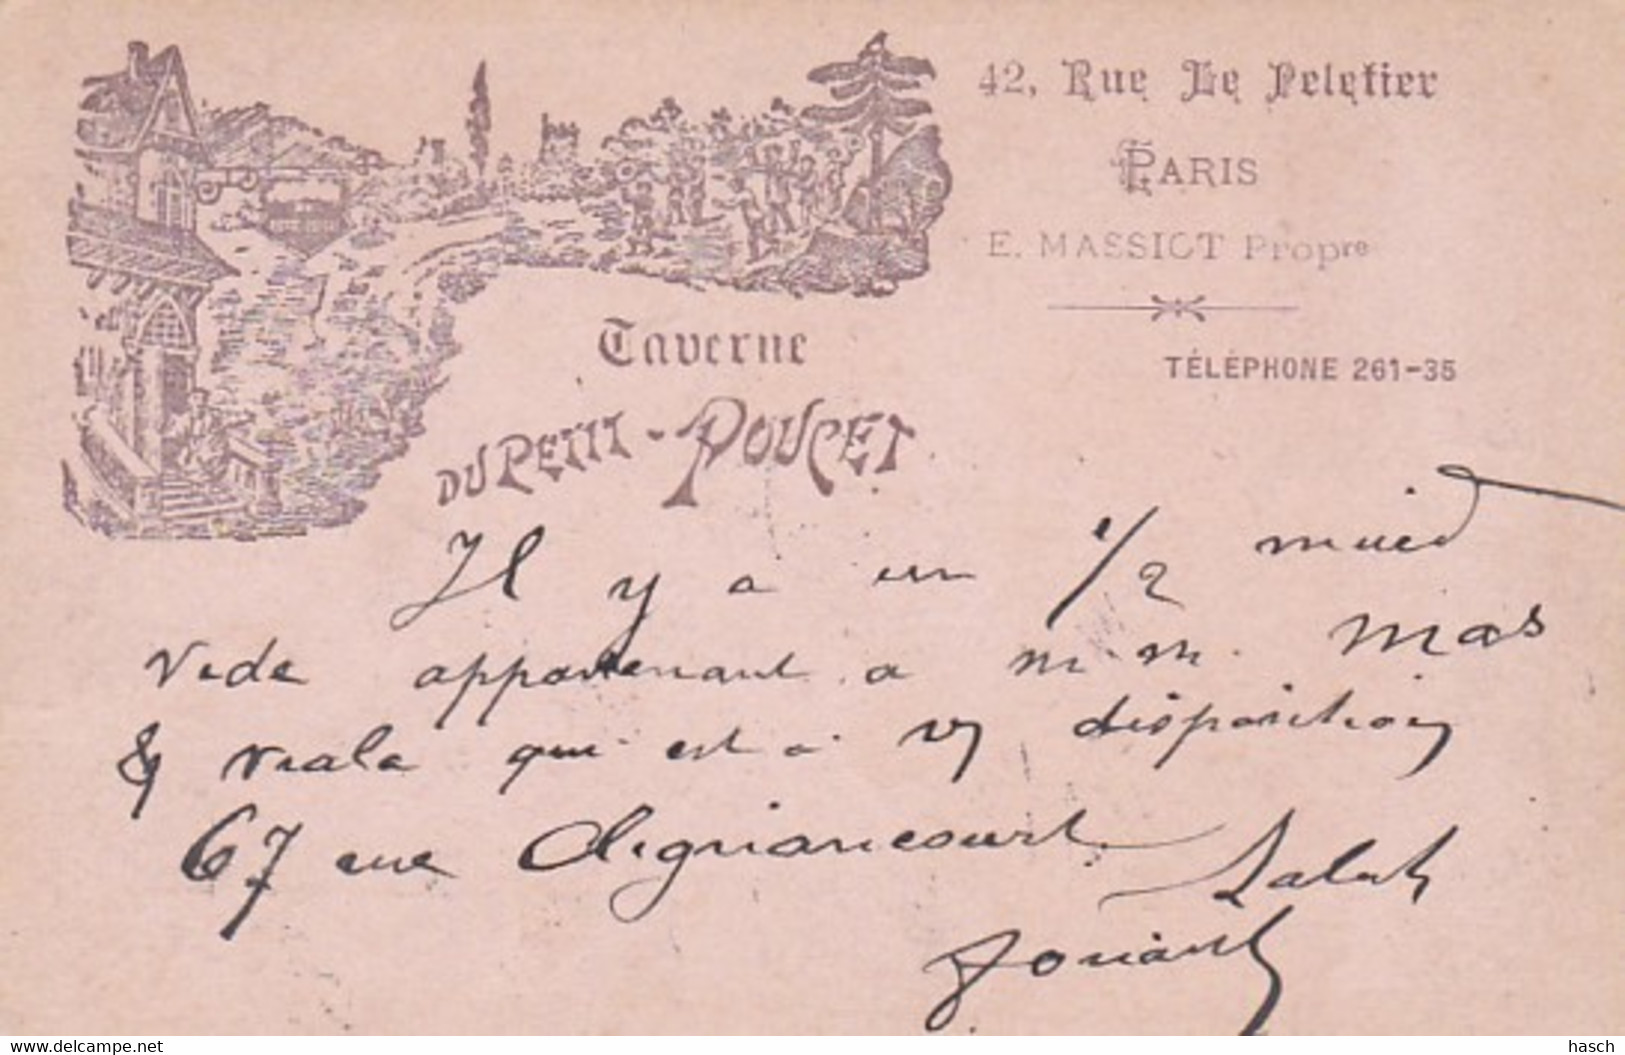 42, Rue Le Peletier
PARIS
E. MASSIOT Propre
TÉLÉPHONE 261-35
Taverne
DU PETIT-POUCET
Il y a un 1/2 muid
vide appartenant a m m. Mas
& Viala qui est a v/ disposition
67 rue Clignancourt
Salut
www.delcampe.net
hasch